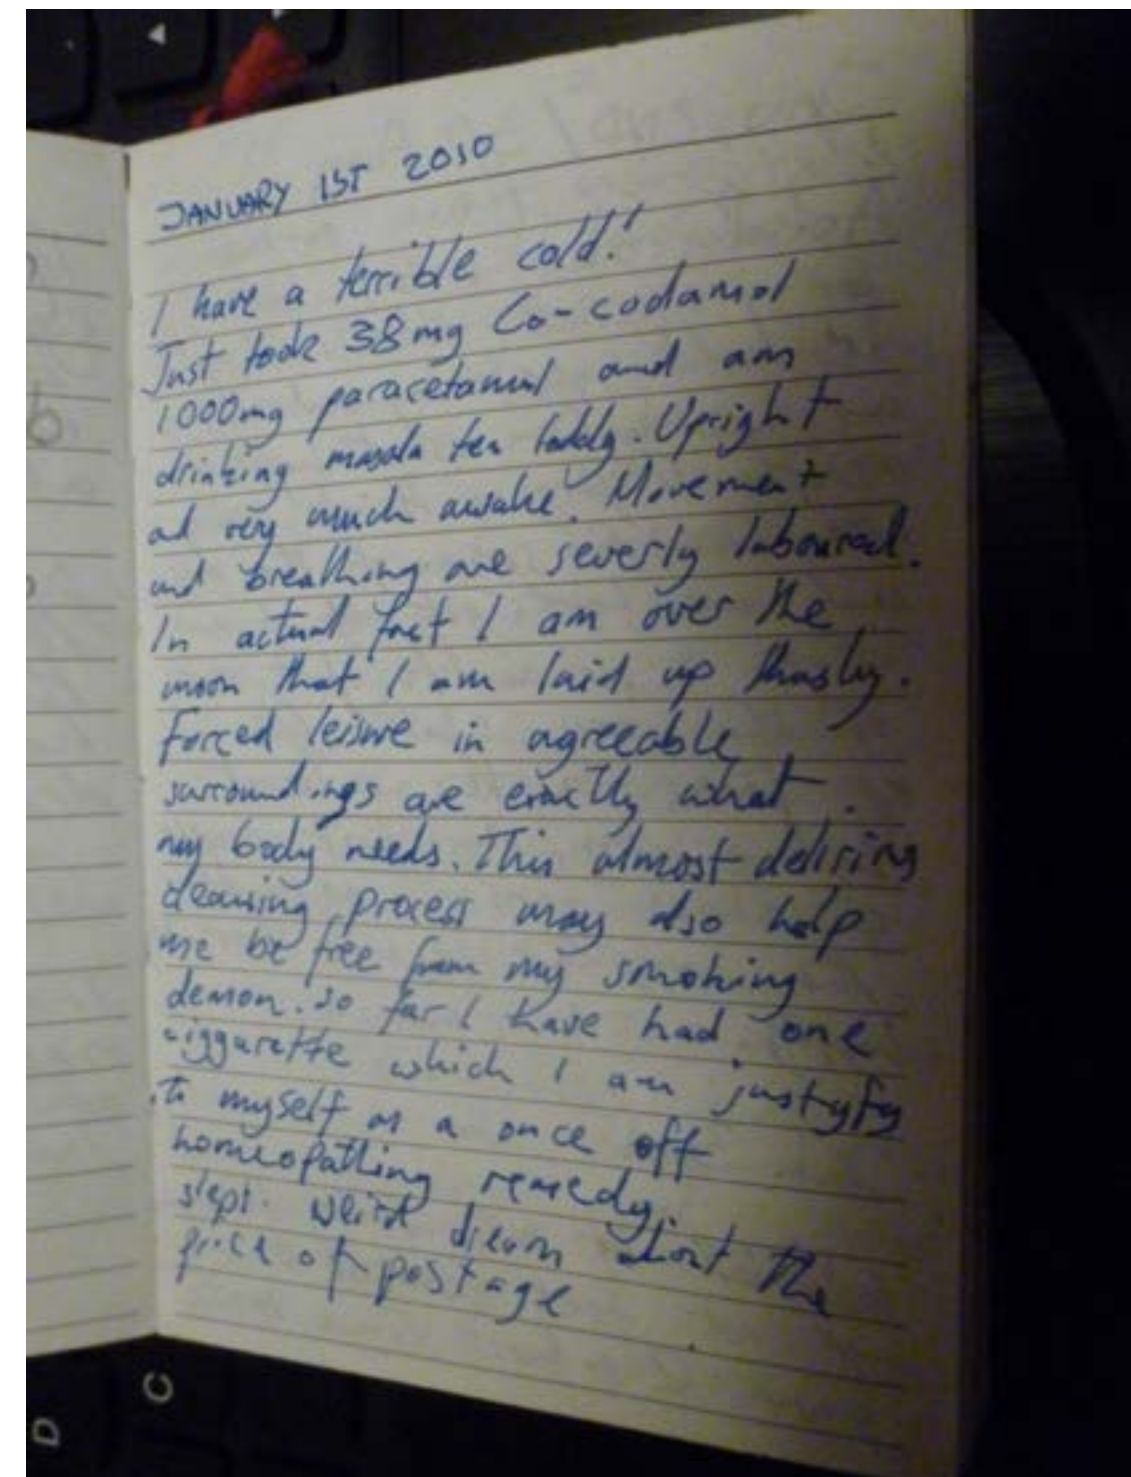 JANUARY 1ST 2010
I have a terrible cold!
Just took 38mg Co-codamol
1000mg paracetamol and am
drinking masala tea toddy. Upright
ad very much awake. Movement
and breathing are severly laboured.
In actual fact I am over the
moon that I am laid up thusly.
Forced leisure in agreeable
surroundings are exactly what
my body needs. This almost
cleansing process may also help
me be free from my smoking
demon. so far I have had one
ciggarette which I am justyfy
to myself as a once off
homeopathing remedy.
slept. weird dream about the
price of postage
C
D